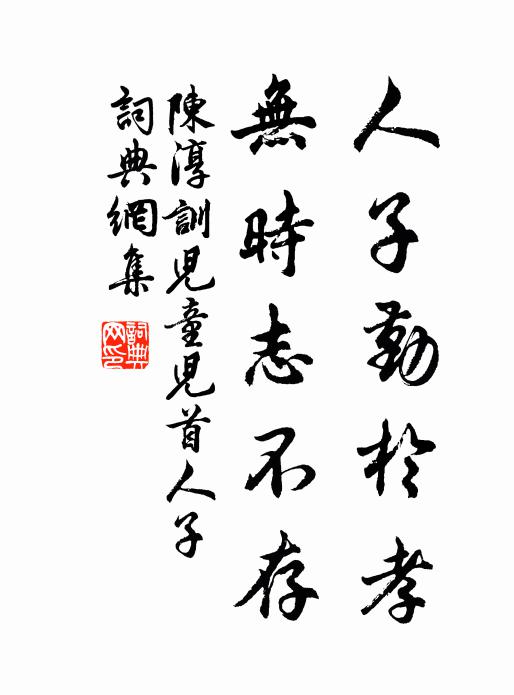 人子勤於孝
無時志不存
陳淳訓児童児首人子
詞典網集
詞典網印